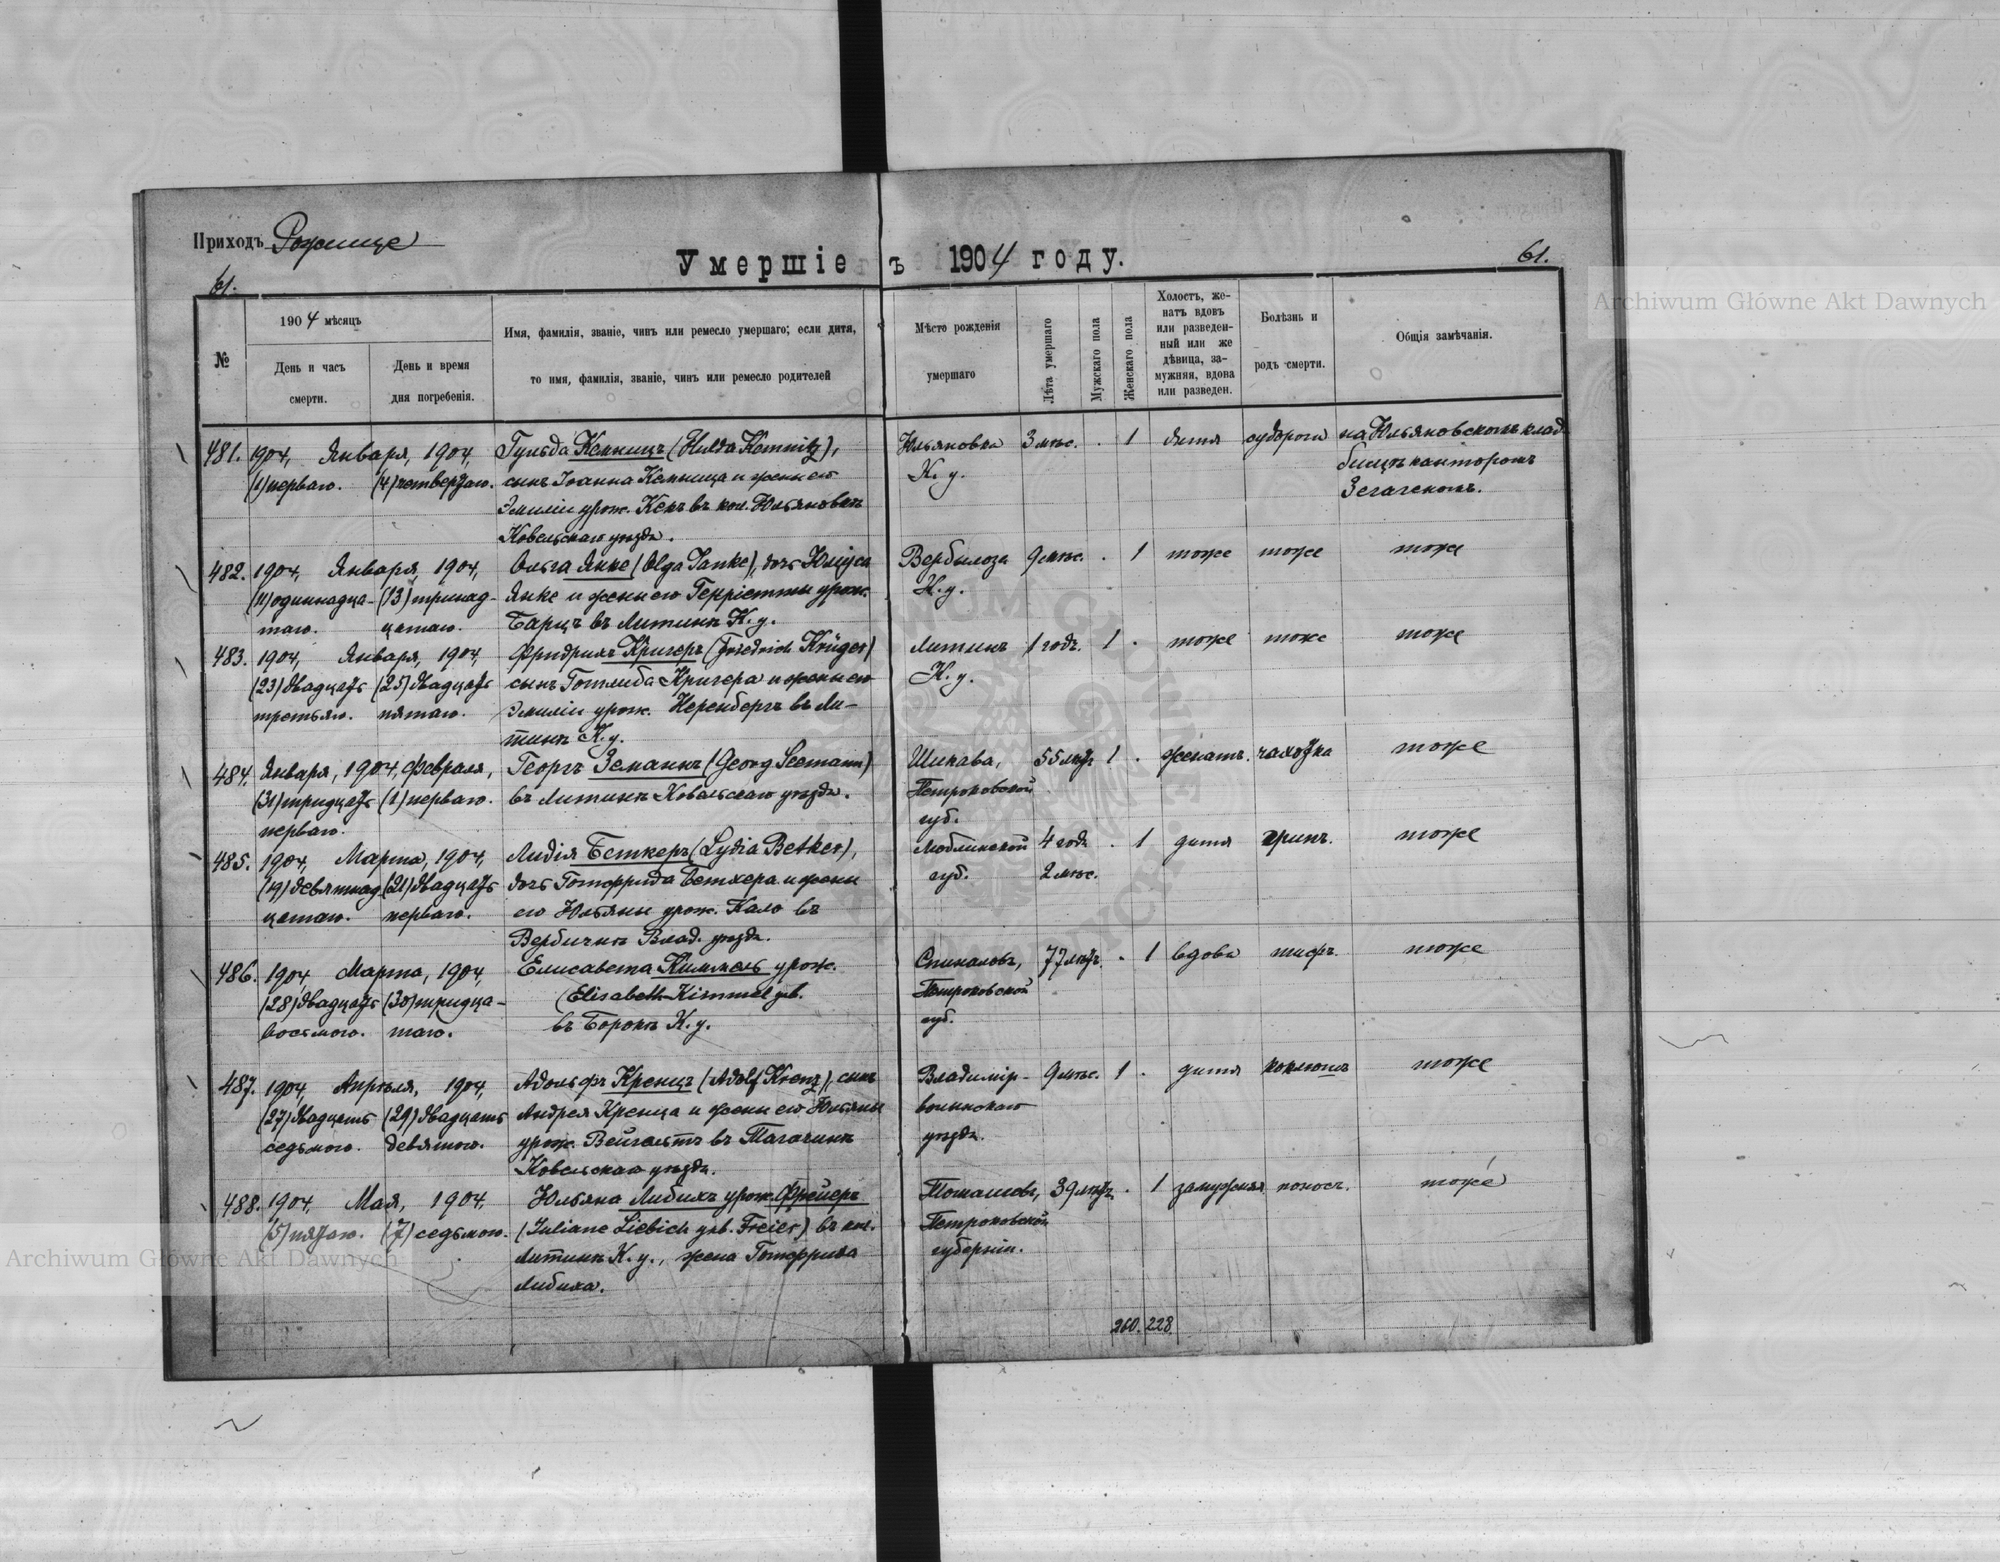 Приходъ Рожище
Умершіе въ 1904 году.
61.
61.
№
1904 мѣсяцъ
День и часъ
смерти.
День и время
дня погребенія.
Имя, фамилія, званіе, чинъ или ремесло умершаго; если дитя,
то имя, фамилія, званіе, чинъ или ремесло родителей
Мѣсто рожденія
умершаго
Лѣта умершаго
Мужскаго пола
Женскаго пола
Холостъ, же-
натъ вдовъ
или разведен-
ный или же
дѣвица, за-
мужняя, вдова
или разведен.
Болѣзнь и
родъ смерти.
Общія замѣчанія.
481. 1904, Января, 1904, Гульда Кемницъ (Hulda Kemnitz), Юльяновка 3 мѣс. . 1 дитя судороги на Юльяновскомъ клад
(1) перваго. (4) четвертаго. сынъ Іоанна Кемница и жены его К. у.
Эмиліи урож. въ кол. Юльяновкѣ
Ковельскаго уѣзда.
482. 1904, Января, 1904, Ольга Янке (Olga Janke), дочь Юліуса 9 мѣс. . 1 тоже тоже тоже
(11) одиннадца- (13) тринад- Янке и жены его Генріетты урож. К. у.
таго. цатаго. Барцъ въ Литинѣ К. у.
483. 1904, Января, 1904, Фридрихъ Кригеръ (Friedrich Krüger) Литинъ 1 годъ. 1 . тоже тоже тоже
(23) двадцать (25) двадцать сынъ Готлиба Кригера и жены его К. у.
третьяго. пятаго. Эмиліи урож. Неренбергъ въ Ли-
тинѣ К. у.
484. Января, 1904, Февраля, Георгъ Земаннъ (Georg Seemann) 55 лѣтъ 1 . женатъ. чахотка тоже
(31) тридцать (1) перваго. въ Литинѣ Ковельскаго уѣзда. Петроковской
перваго. губ.
485. 1904, Марта, 1904, Лидія Беткеръ (Lydia Betker), Люблинской 4 года . 1 дитя грипъ. тоже
(19) девятнад (21) двадцать дочь Готфрида Беткера и жены губ. 2 мѣс.
цатаго. перваго. его Юльяны урож. Кало въ
Вербичнѣ Влад. уѣзда.
486. 1904, Марта, 1904, Елисавета Киммель урож. 77 лѣтъ. . 1 вдова тифъ. тоже
(28) двадцать (30) тридца- (Elisabeth Kimmel geb. Петроковской
восьмого. таго. въ Борокѣ К. у. губ.
487. 1904, Апрѣля, 1904, Адольфъ Кренцъ (Adolf Krenz), сынъ Владимір- 9 мѣс. 1 . дитя коклюшъ тоже
(27) двадцать (29) двадцать Андрея Кренца и жены его Юльяны волынскаго
седьмого. девятого. урож. Вейгельтъ въ Тагачинѣ уѣзда.
Ковельскаго уѣзда.
488. 1904, Мая, 1904, Юльяна Либихъ урож. Фрейеръ Томашовъ, 39 лѣтъ. . 1 замужняя поносъ. тоже
(5) пятаго. (7) седьмого. (Juliane Liebich geb. Freier) въ кол. Петроковской
Литинѣ К. у., жена Готфрида губерніи.
Либиха.
260. 228
Archiwum Główne Akt Dawnych
Archiwum Główne Akt Dawnych